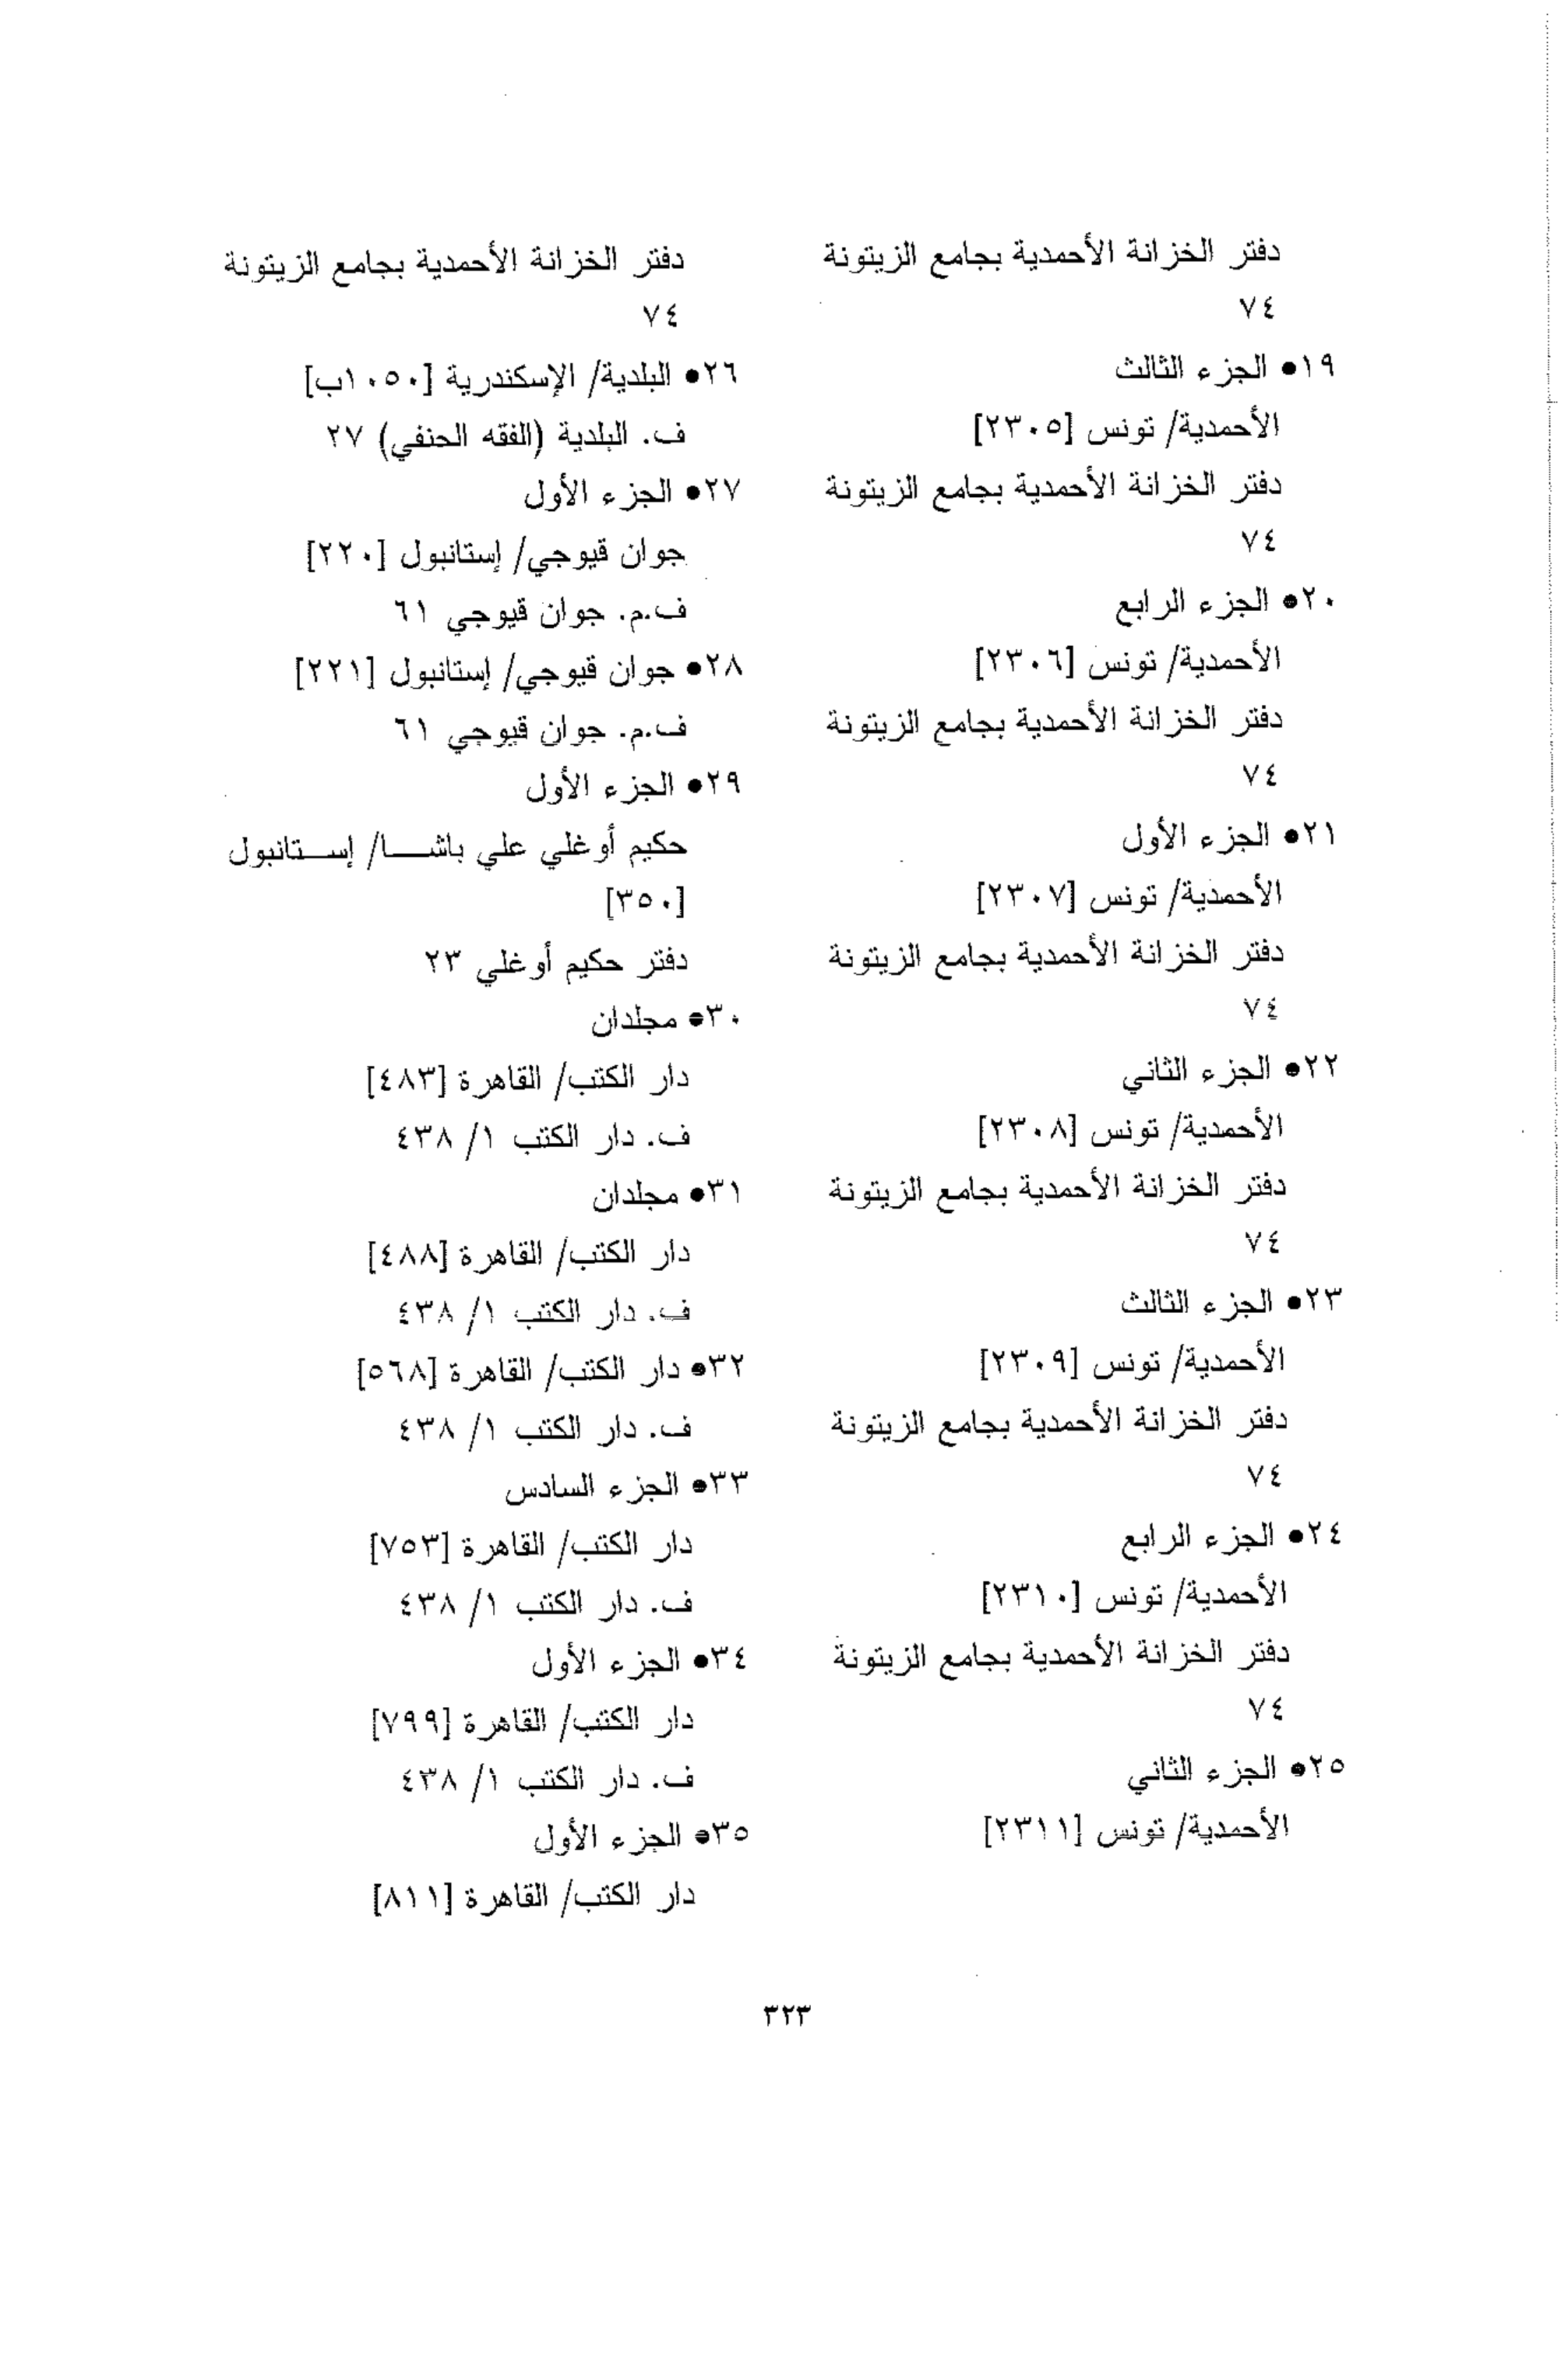 دفتر الخزانة الأحمدية بجامع الزيتونة
٧٤
١٩● الجزء الثالث
الأحمدية/ تونس [٢٣٠٥]
دفتر الخزانة الأحمدية بجامع الزيتونة
٧٤
٢٠● الجزء الرابع
الأحمدية/ تونس [٢٣٠٦]
دفتر الخزانة الأحمدية بجامع الزيتونة
٧٤
٢١● الجزء الأول
الأحمدية/ تونس [٢٣٠٧]
دفتر الخزانة الأحمدية بجامع الزيتونة
٧٤
٢٢● الجزء الثاني
الأحمدية/ تونس [٢٣٠٨]
دفتر الخزانة الأحمدية بجامع الزيتونة
٧٤
٢٣● الجزء الثالث
الأحمدية/ تونس [٢٣٠٩]
دفتر الخزانة الأحمدية بجامع الزيتونة
٧٤
٢٤● الجزء الرابع
الأحمدية/ تونس [٢٣١٠]
دفتر الخزانة الأحمدية بجامع الزيتونة
٧٤
٢٥● الجزء الثاني
الأحمدية/ تونس [٢٣١١]
دفتر الخزانة الأحمدية بجامع الزيتونة
٧٤
٢٦● البلدية/ الإسكندرية [١٠٥٠ب]
ف. البلدية (الفقه الحنفي) ٢٧
٢٧● الجزء الأول
جوان قيوجي/ إستانبول [٢٢٠]
ف.م. جوان قيوجي ٦١
٢٨● جوان قيوجي/ إستانبول [٢٢١]
ف.م. جوان قيوجي ٦١
٢٩● الجزء الأول
حكيم أوغلي علي باشـــا/ إســـتانبول
[٣٥٠]
دفتر حكيم أوغلي ٢٣
٣٠● مجلدان
دار الكتب/ القاهرة [٤٨٣]
ف. دار الكتب ١/ ٤٣٨
٣١● مجلدان
دار الكتب/ القاهرة [٤٨٨]
ف. دار الكتب ١/ ٤٣٨
٣٢● دار الكتب/ القاهرة [٥٦٨]
ف. دار الكتب ١/ ٤٣٨
٣٣● الجزء السادس
دار الكتب/ القاهرة [٧٥٣]
ف. دار الكتب ١/ ٤٣٨
٣٤● الجزء الأول
دار الكتب/ القاهرة [٧٩٩]
ف. دار الكتب ١/ ٤٣٨
٣٥● الجزء الأول
دار الكتب/ القاهرة [٨١١]
٣٢٣